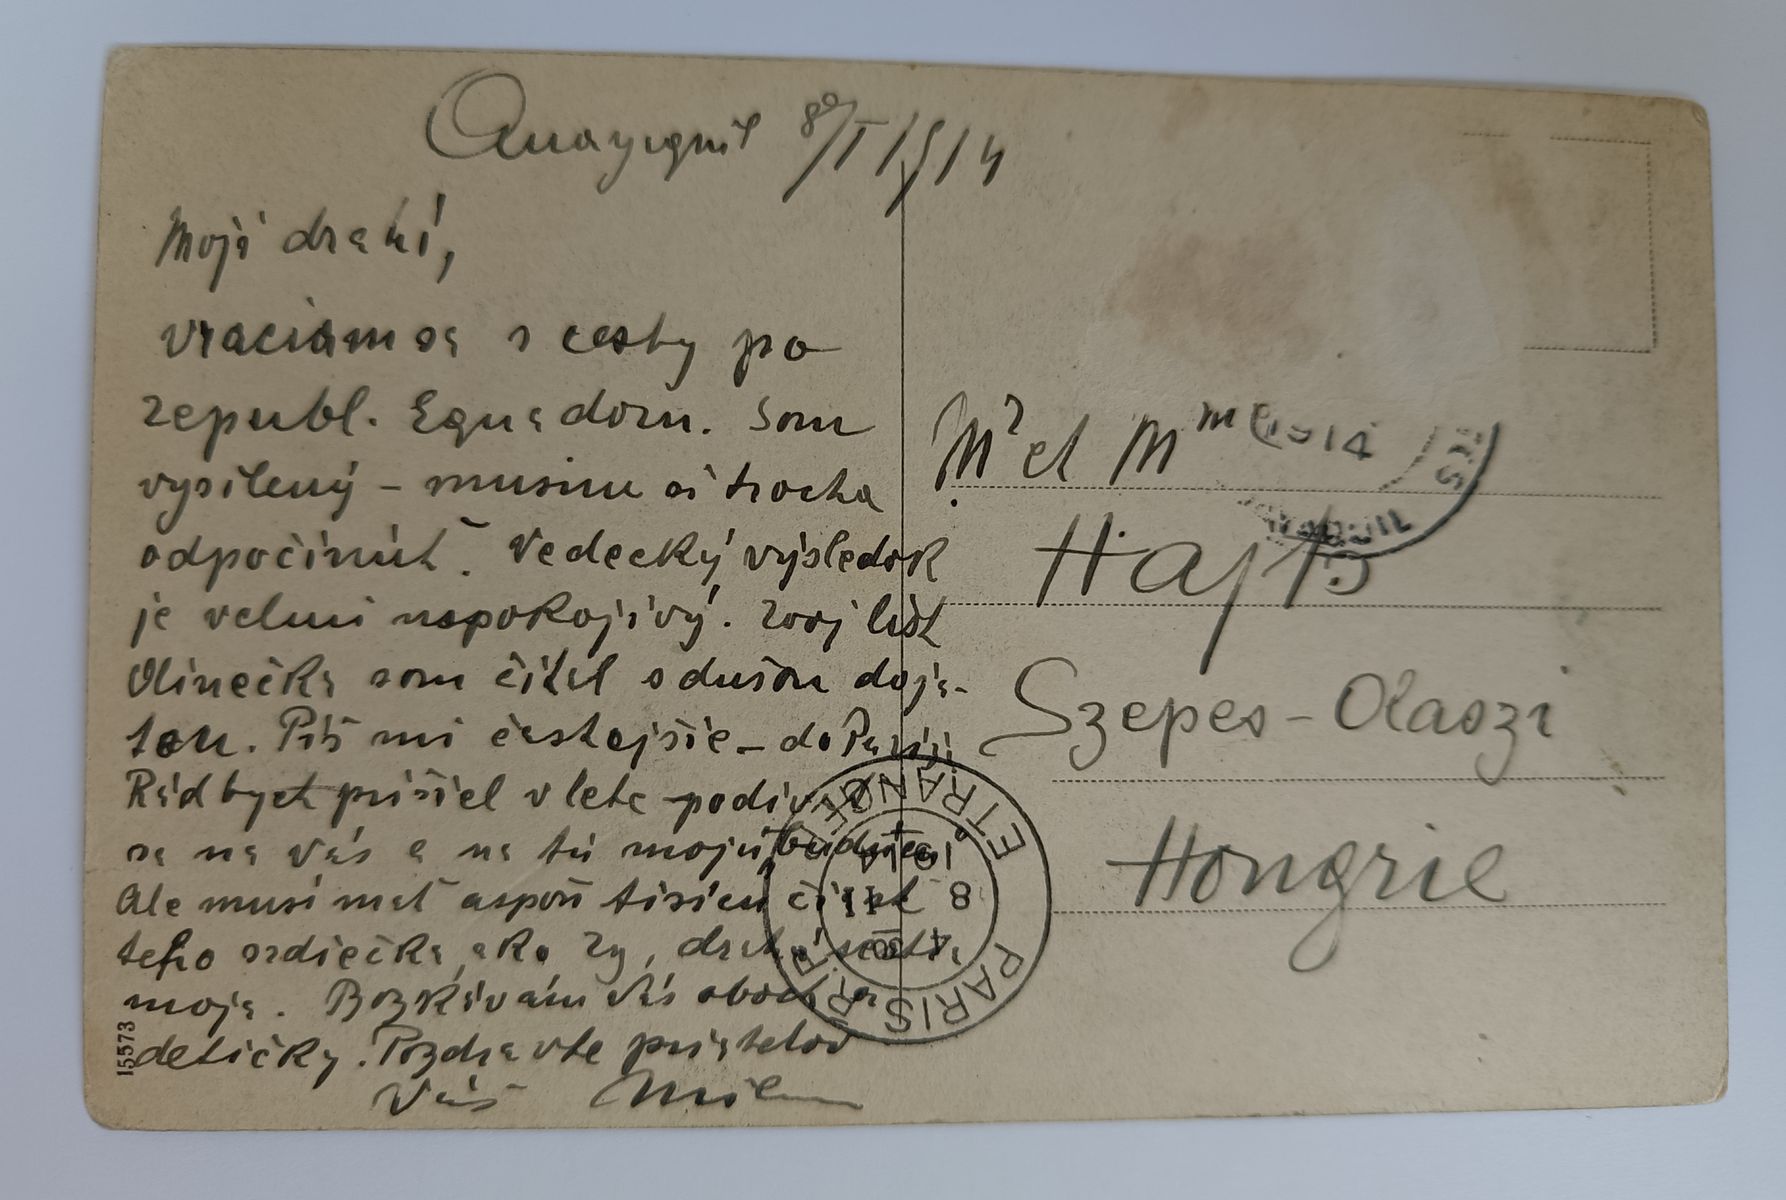 Guayaquil 8/I 1914
Moji drahí,
vraciam sa s cesty po
republ. Equadoru. Som
vysilený – musím si trocha
odpočinúť. Vedecký výsledok
je velmi uspokojivý. Tvoj list
Olinečka som čítal s dušou doja-
tou. Píš mi častejšie – do Paríža
Rád bych prišiel v lete podívať
sa na Vás a na tú moju
Ale musí mať aspoň tisícu čiast
teho srdiečka, ako Ty, drahá sestra
moja. Bozkávám Vás oboch a
detičky. Pozdravte priatelov
Váš Milan
15573
Mr et Mme
Hajts
Szepes-Olaszi
Hongrie
1914
PARIS R.P. ETRANGER
8 II
1914